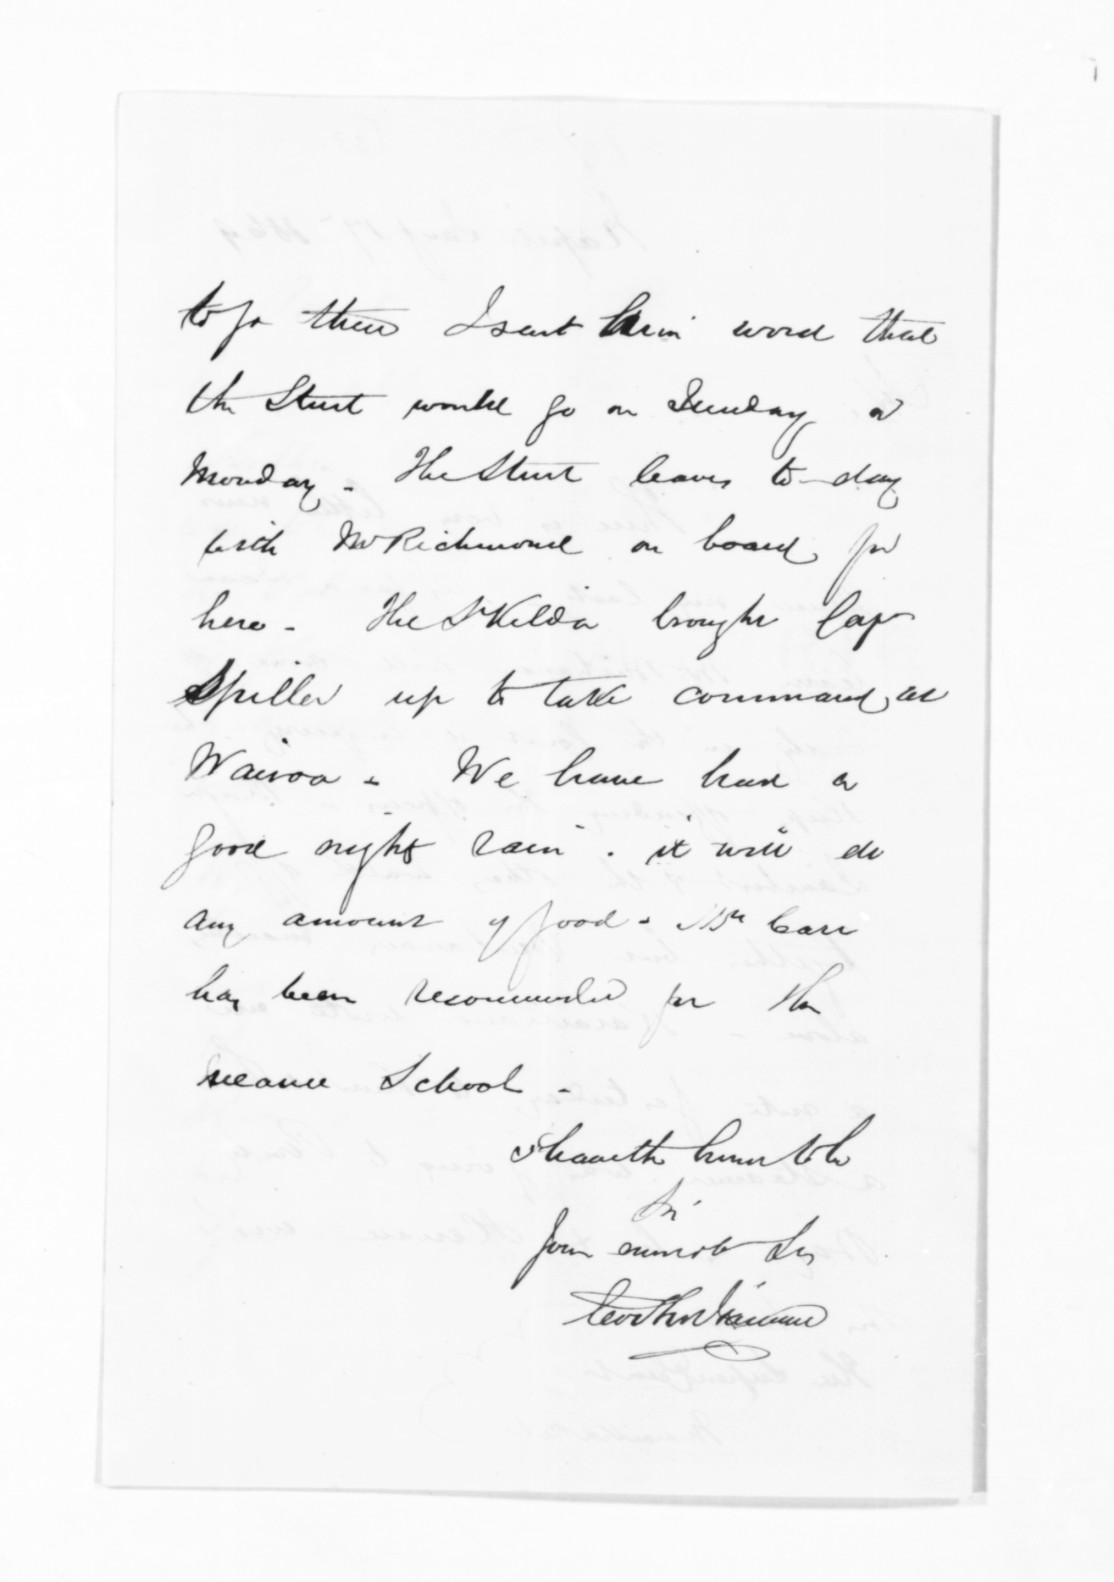 to go there I sent him word that
the Sturt would go on Sunday or
Monday - The Sturt leaves to-day
with Mr Richmond on board for
here - The St Kilda brought Cap
Spiller up to take command at
Wairoa - We have had a
good nights rain . it will do
any amount of good - Mr Carr
has been recommended for the
Meanee School -
I have the honor to be
Sir
Your